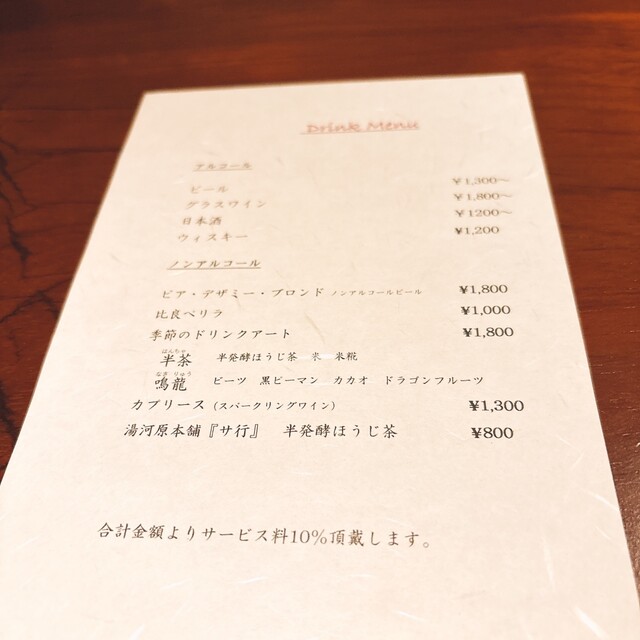 Drink Menu
アルコール
ビール ￥1,300～
グラスワイン ￥1,800～
日本酒 ￥1200～
ウィスキー ¥1,200
ノンアルコール
ビア・デザミー・ブロンド ノンアルコールビール ¥1,800
比良ペリラ ¥1,000
季節のドリンクアート ¥1,800
はんちゃ
半茶 半発酵ほうじ茶 米 米糀
なき りゅう
鳴龍 ビーツ 黒ピーマン カカオ ドラゴンフルーツ
カプリース（スパークリングワイン） ¥1,300
湯河原本舗『サ行』 半発酵ほうじ茶 ¥800
合計金額よりサービス料10%頂戴します。